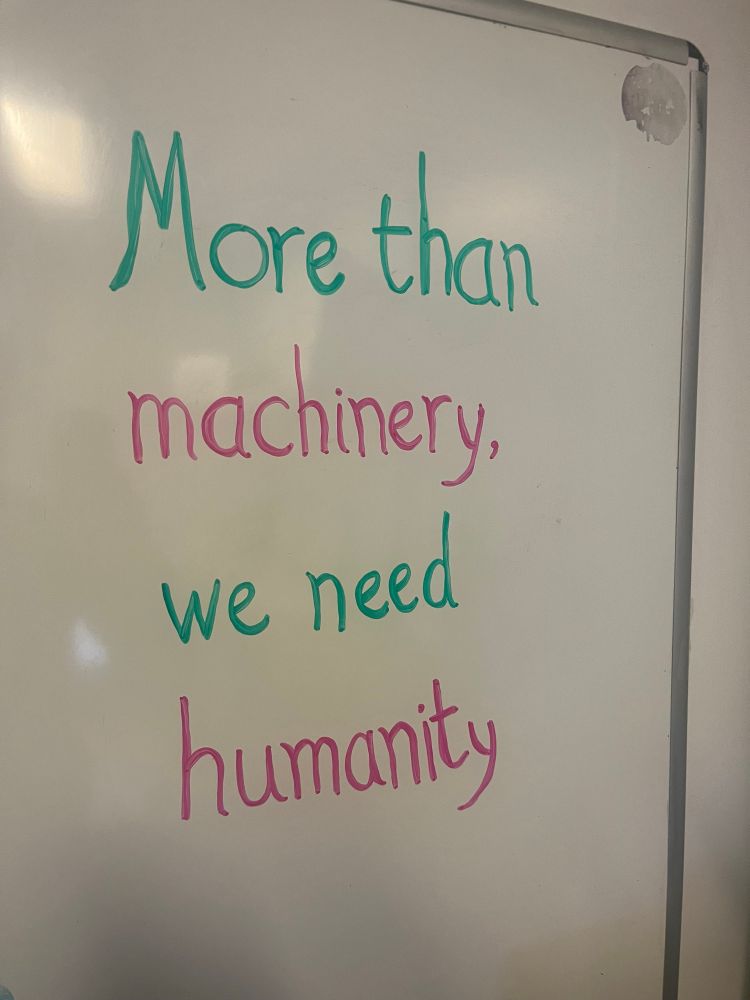 More than
machinery,
we need
humanity